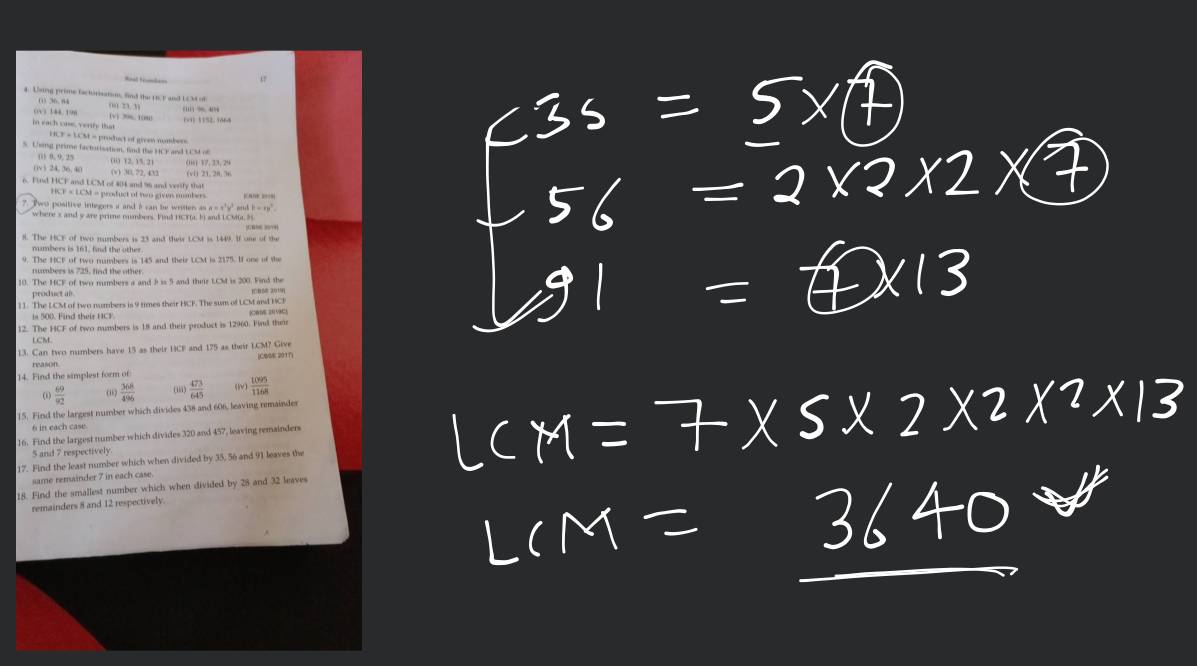 Real Numbers 17
4. Using prime factorisation, find the HCF and LCM of:
(i) 36, 84 (ii) 23, 31 (iii) 96, 404
(iv) 144, 198 (v) 396, 1080 (vi) 1152, 1664
In each case, verify that
HCF × LCM = product of given numbers.
5. Using prime factorisation, find the HCF and LCM of:
(i) 8, 9, 25 (ii) 12, 15, 21 (iii) 17, 23, 29
(iv) 24, 36, 40 (v) 30, 72, 432 (vi) 21, 28, 36
6. Find HCF and LCM of 404 and 96 and verify that
HCF × LCM = product of two given numbers. [CBSE 2018]
7. Two positive integers a and b can be written as a = x³y² and b = xy³,
where x and y are prime numbers. Find HCF(a, b) and LCM(a, b).
8. The HCF of two numbers is 23 and their LCM is 1449. If one of the
numbers is 161, find the other.
9. The HCF of two numbers is 145 and their LCM is 2175. If one of the
numbers is 725, find the other.
10. The HCF of two numbers a and b is 5 and their LCM is 200. Find the
product ab. [CBSE 2019]
11. The LCM of two numbers is 9 times their HCF. The sum of LCM and HCF
is 500. Find their HCF. [CBSE 2019C]
12. The HCF of two numbers is 18 and their product is 12960. Find their
LCM.
13. Can two numbers have 15 as their HCF and 175 as their LCM? Give
reason. [CBSE 2017]
14. Find the simplest form of:
(i) 69/92 (ii) 368/496 (iii) 473/645 (iv) 1095/1168
15. Find the largest number which divides 438 and 606, leaving remainder
6 in each case.
16. Find the largest number which divides 320 and 457, leaving remainders
5 and 7 respectively.
17. Find the least number which when divided by 35, 56 and 91 leaves the
same remainder 7 in each case.
18. Find the smallest number which when divided by 28 and 32 leaves
remainders 8 and 12 respectively.
35 = 5×7
56 = 2×2×2×7
91 = 7×13
LCM = 7×5×2×2×2×13
LCM = 3640